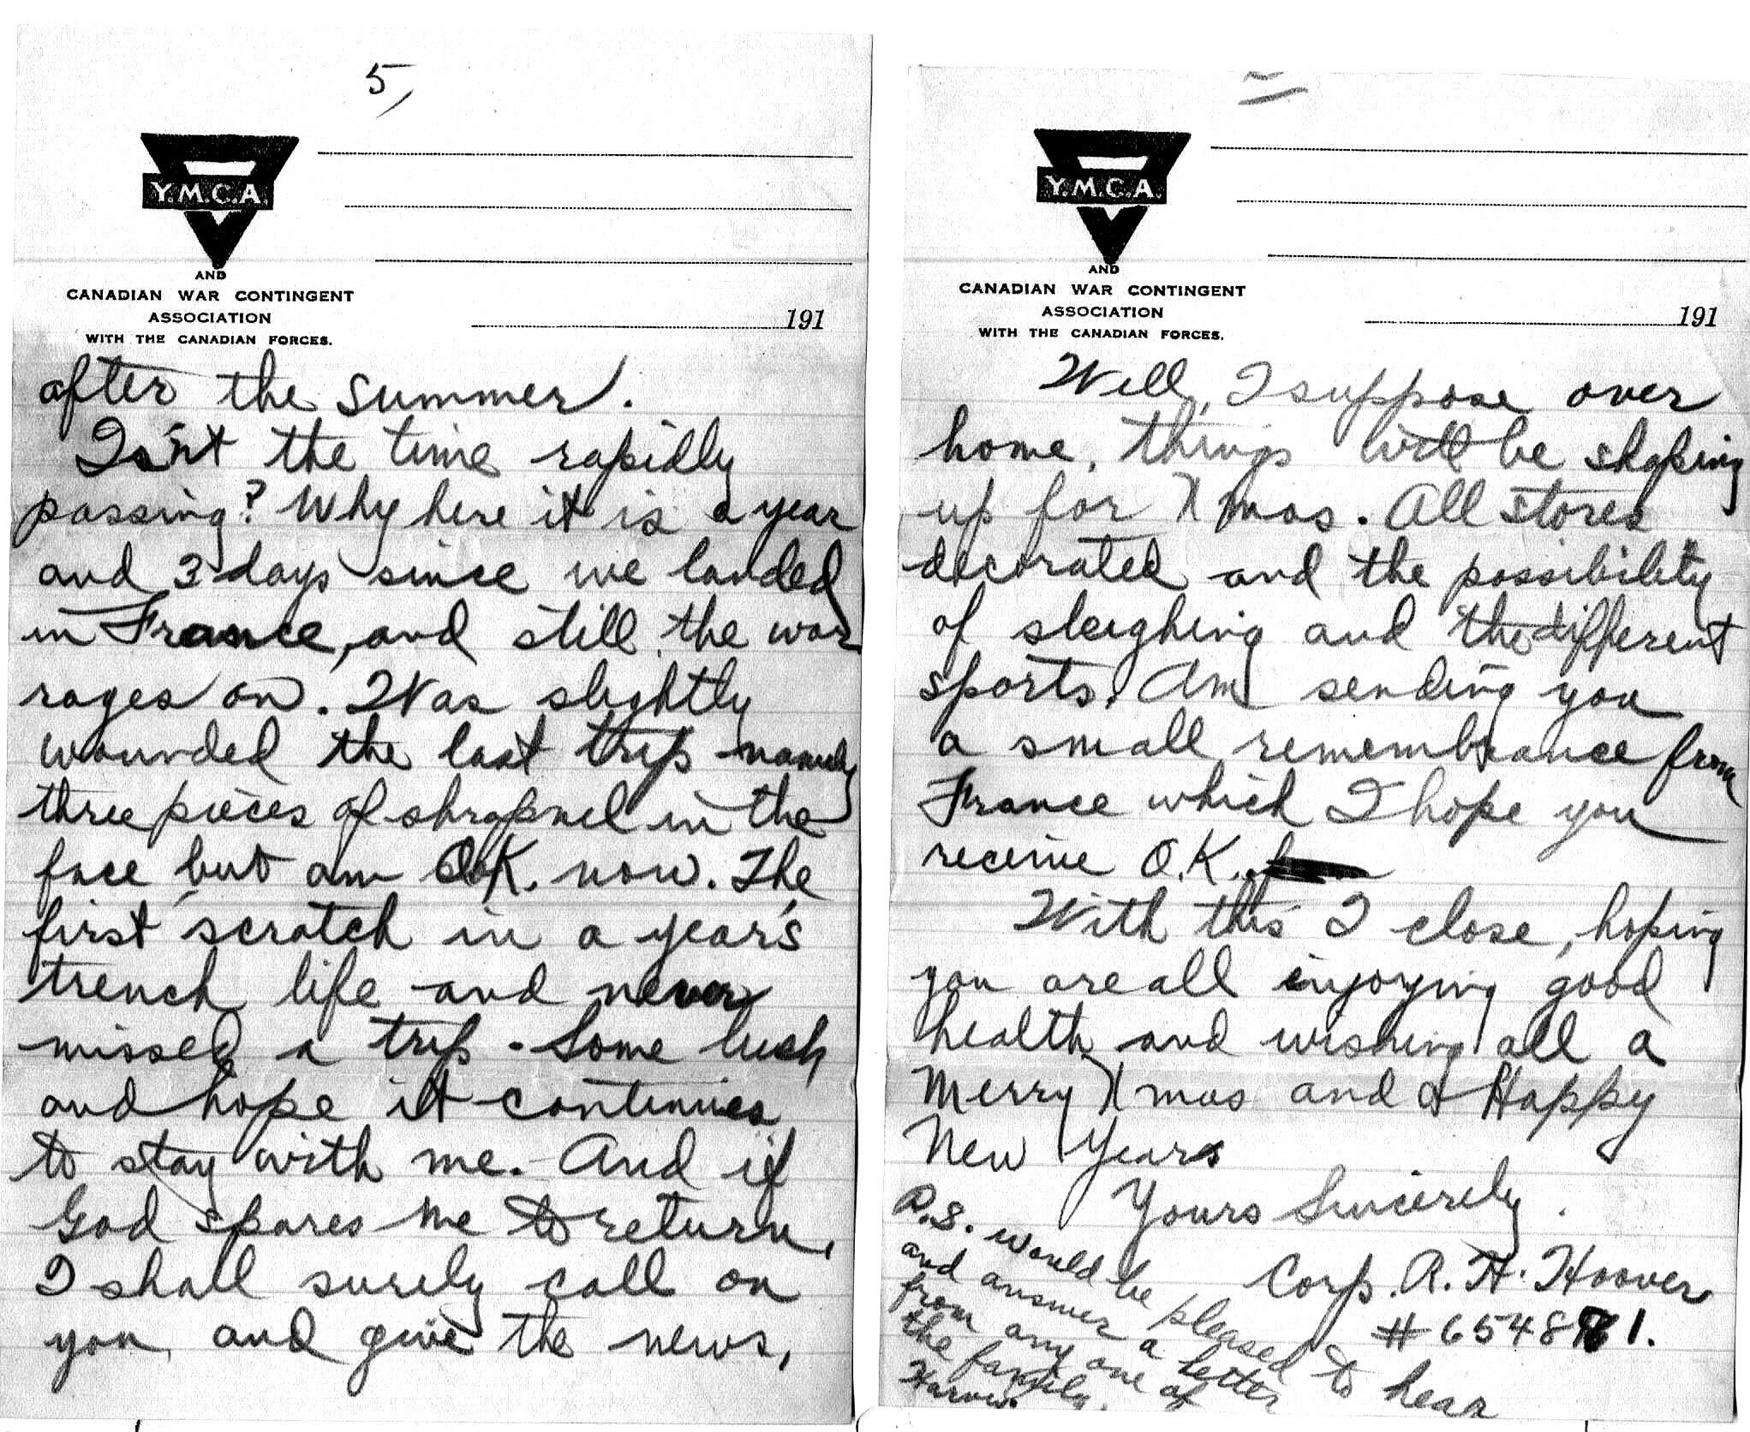 5
Y.M.C.A.
AND
CANADIAN WAR CONTINGENT
ASSOCIATION
WITH THE CANADIAN FORCES.
191
after the summer.
Isn't the time rapidly
passing? Why here it is a year
and 3 days since we landed
in France, and still the war
rages on. Was slightly
wounded the last trip namely
three pieces of shrapnel in the
face but am O.K. now. The
first scratch in a year's
trench life and never
missed a trip. Some luck
and hope it continues
to stay with me. And if
God spares me to return,
I shall surely call on
you and give the news,
Y.M.C.A.
AND
CANADIAN WAR CONTINGENT
ASSOCIATION
WITH THE CANADIAN FORCES.
191
Well, I suppose over
home, things will be shaping
up for Xmas. All stores
decorated and the possibility
of sleighing and the different
sports. Am sending you
a small remembrance from
France which I hope you
receive O.K.
With this I close, hoping
you are all enjoying good
health and wishing all a
Merry Xmas and a Happy
New Years
Yours Sincerely.
Corp. R. H. Hoover
# 654881.
P.S. would be pleased to hear
and answer a letter
from any one of
the family.